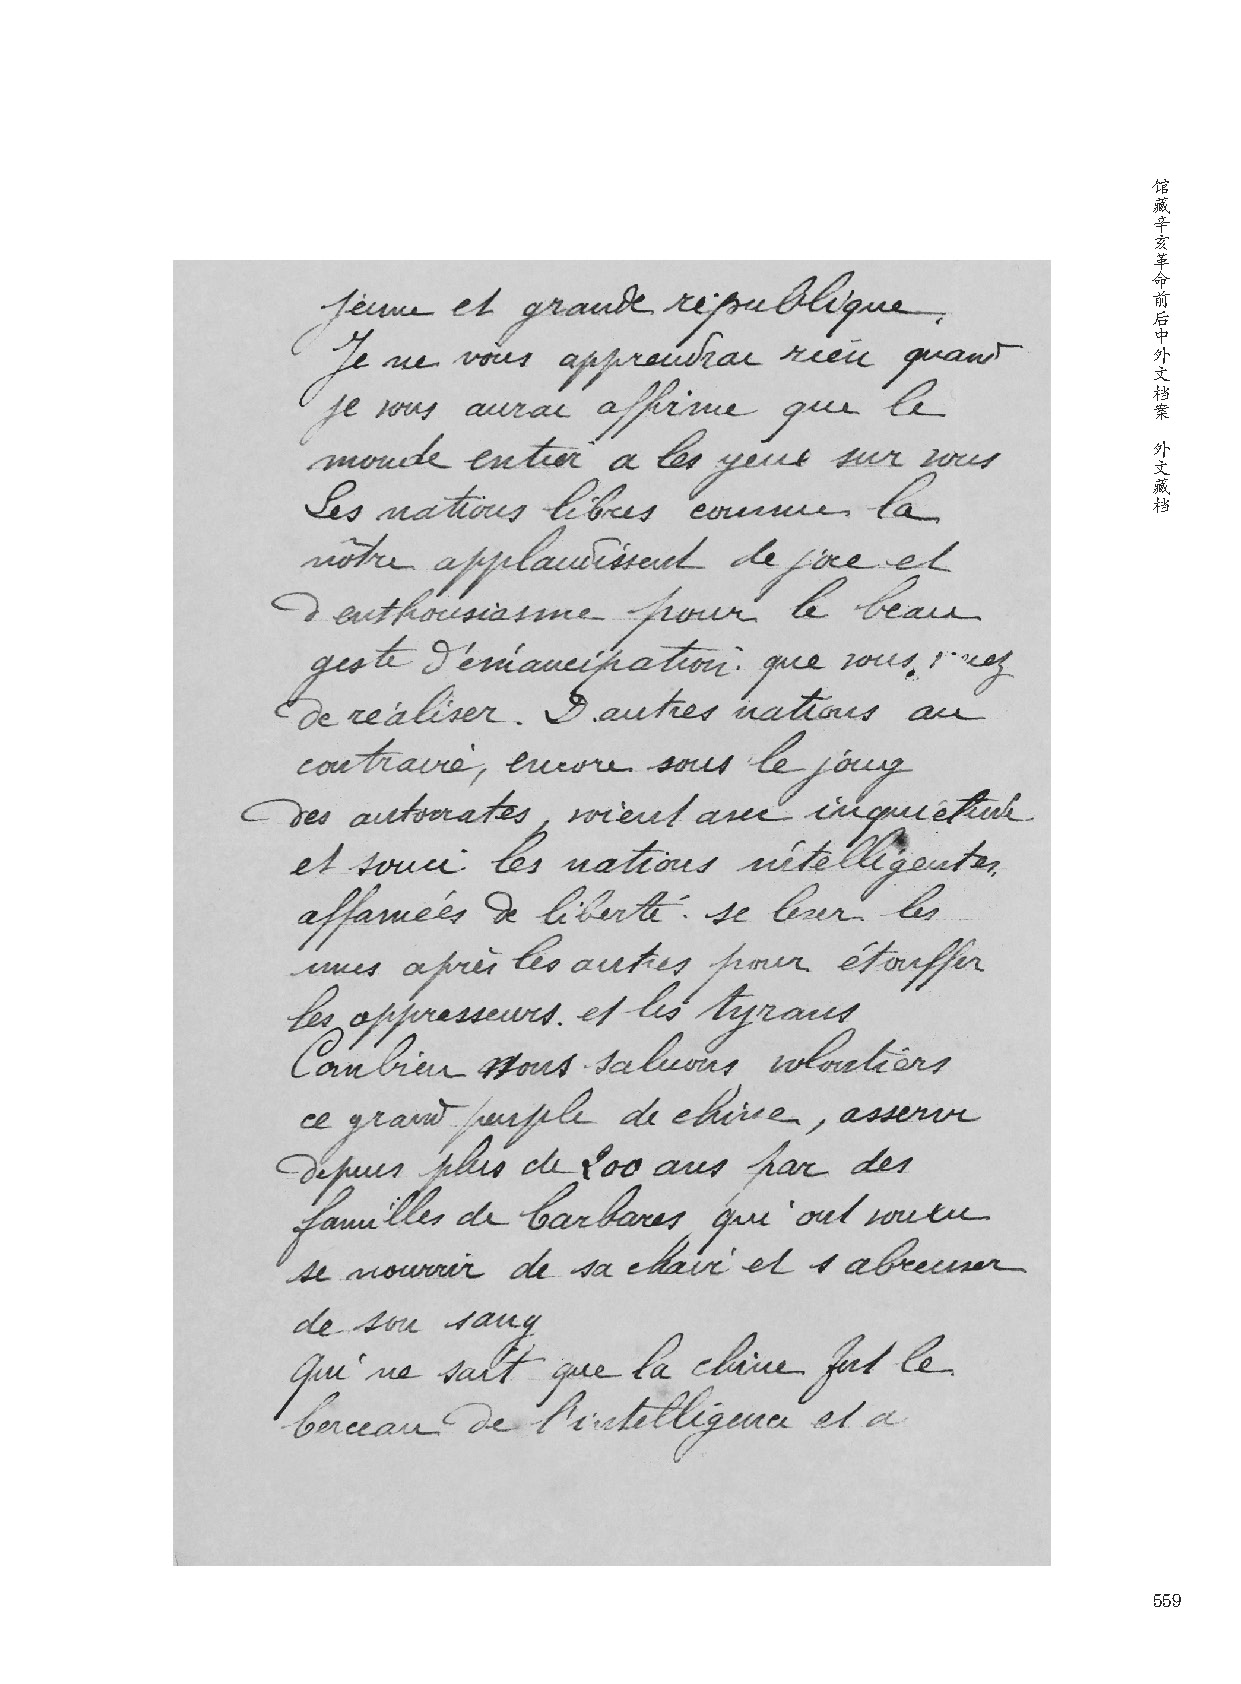 jeune et grande république.
Je ne vous apprendrai rien quand
je vous aurai affirmé que le
monde entier a les yeux sur vous
Les nations libres comme la
nôtre applaudissent de joie et
d enthousiasme pour le beau
geste d'émancipation que vous
de réaliser. D autres nations au
contraire, encore sous le joug
des autocrates, voient avec inquiétude
et souci les nations intelligentes,
affamées de liberté se lever les
unes après les autres pour étouffer
les oppresseurs. et les tyrans
Combien nous saluons volontiers
ce grand peuple de chine, asservi
depuis plus de 200 ans par des
familles de barbares qui ont voulu
se nourrir de sa chair et s abreuver
de son sang
Qui ne sait que la chine fut le
berceau de l'intelligence et a
馆藏辛亥革命前后中外文档案 外文藏档
559